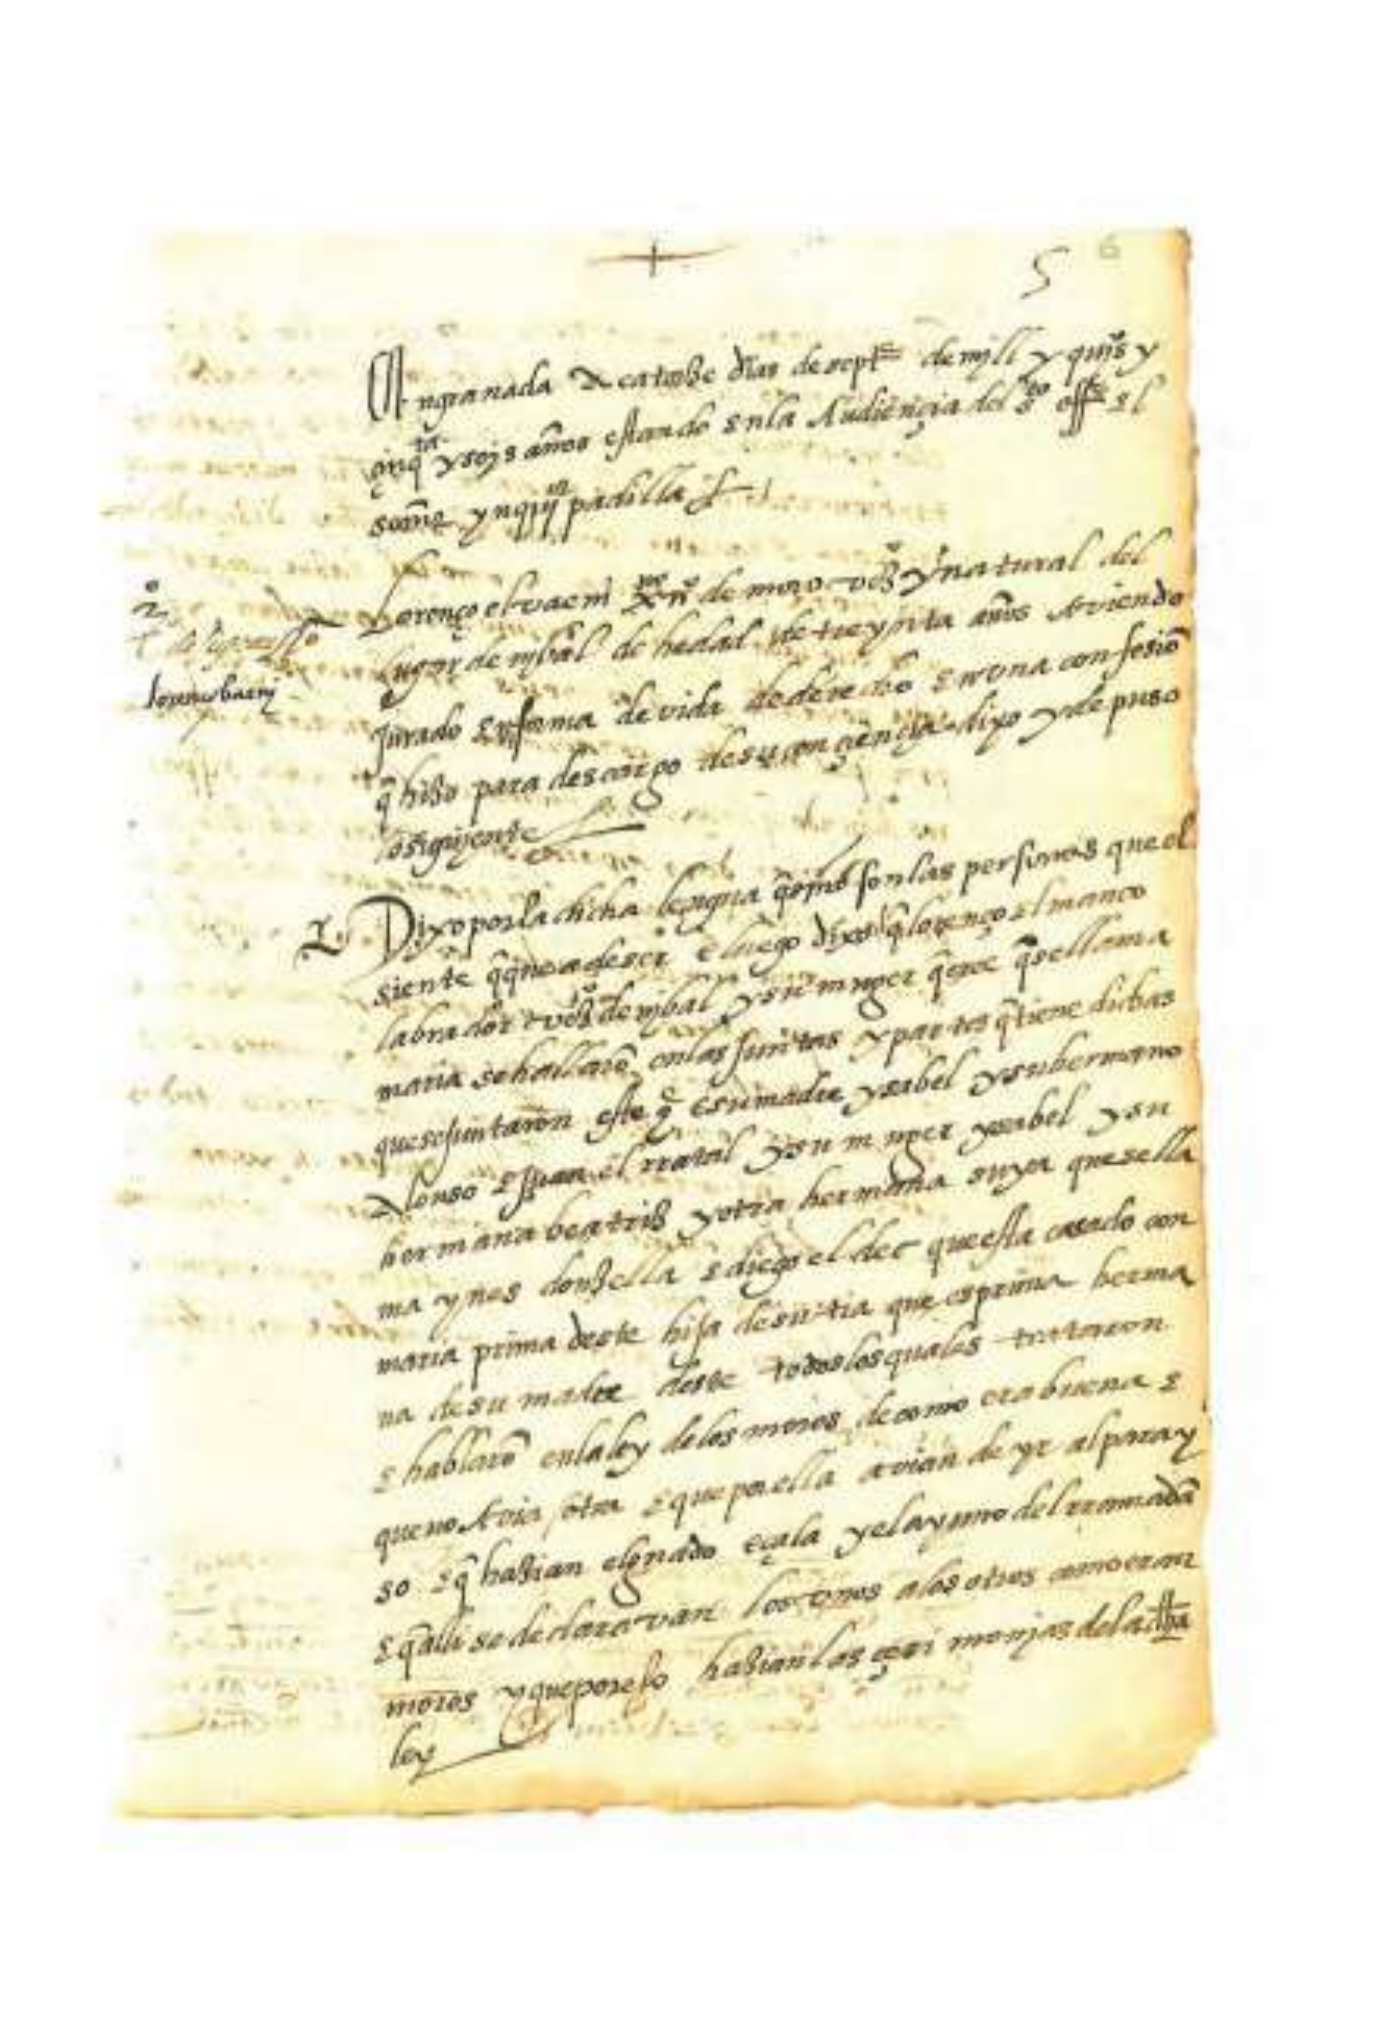 5 6
En granada A catorze dias de sept e de mill y quis y
çinq ta y seis años estando En la Audiençia del S to offº El
señor ynqui or padilla
Lorenço el vaçni xpiano nº de moro vzº y natural del
lugar de mjbal de hedad de treynta años Aviendo
lorenço baçni
jurado En forma devida de derecho En una confesiõ
q̃ hizo para descargo de su conçiençia dixo y depuso
lo siguyente
Dixo por la dicha lengua son las personas que el
siente e luego dixo q̃ lorenço el manco
labrador e vzº de mjbal y su muger q̃ cree q̃ se llama
maria se hallarõ en las juntas y partes q̃ tiene dichas
que se juntaron este q̃ es su madre ysabel y su hermano
Alonso E juan el rratal y su muger ysabel y su
hermana beatriz y otra hermana suya que se lla
ma ynes donzella E diego el dec que esta casado con
maria prima deste hija de su tia que es prima herma
na de su madre deste todos los quales trataron
E hablarõ en la ley de los moros de como era buena E
que no Avia otra E que por ella avian de yr al paray
so E q̃ hazian el guado e çala y el ayuno del rramadã
E q̃ alli se declaravan los unos a los otros como eran
moros y que por eso hazian las çerimonjas de la dha
ley